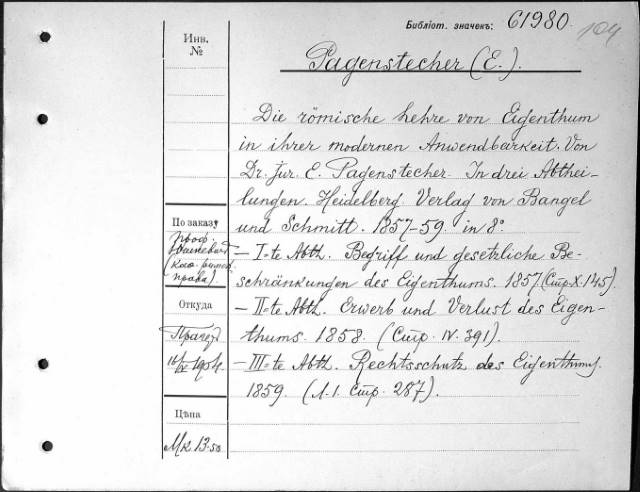 Библіот. значекъ: 61980. 104
Инв.
№
Pagenstecher (E.).
Die römische Lehre von Eigenthum
in ihrer modernen Anwendbarkeit. Von
Dr. jur. E. Pagenstecher. In drei Abthei-
lungen. Heidelberg. Verlag von Bangel
und Schmitt. 1857-59. in 8°.
— I-te Abth. Begriff und gesetzliche Be-
schränkungen des Eigenthums. 1857. (Стр. X. 145).
— II-te Abth. Erwerb und Verlust des Eigen-
thums. 1858. (Стр. IV. 391).
— III-te Abth. Rechtsschutz des Eigenthums.
1859. (Л. 1. Стр. 287).
По заказу
Проф.
(каѳ. римск.
права).
Откуда
1904
Цѣна
Мк 13.50